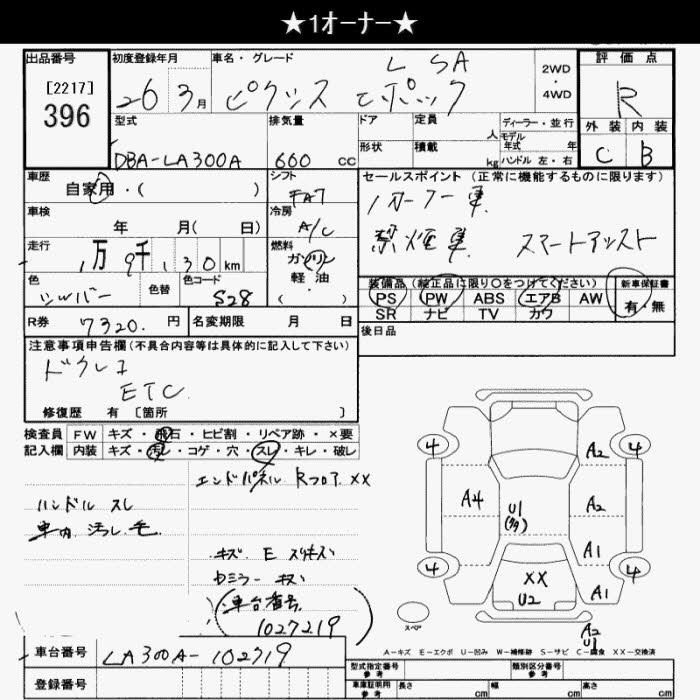 ★1オーナー★
出品番号 初度登録年月 車名・グレード 評価点
[2217]
396
26 3月 ピクシス エポック L SA 2WD・4WD R
型式 排気量 ドア 定員 人 ディーラー・並行 外装 内装
DBA-LA300A 660 CC 形状 積載 kg モデル年式 年 ハンドル 左・右 C B
車歴 シフト セールスポイント (正常に機能するものに限ります)
自家用・( ) FA7 1オーナー車
車検 冷房 禁煙車 スマートアシスト
年 月( 日) A/C
走行 燃料
1万9千130km ガソリン
色 色替 色コード 軽油 装備品 (純正品に限り○をつけてください) 新車保証書
シルバー S28 ・( ) PS PW ABS エアB AW 有・無
SR ナビ TV カワ
R券 7320.円 名変期限 月 日 後日品
注意事項申告欄(不具合内容等は具体的に記入して下さい)
ドラレコ
ETC
修復歴 有 [箇所 ]
検査員 FW キズ・飛石・ヒビ割・リペア跡・×要
記入欄 内装 キズ・汚レ・コゲ・穴・スレ・キレ・破レ
エンドパネル Rフロア XX
ハンドル スレ
車内 汚レ 毛
キズ E スリキズ
(車台番号
1027219)
4 4
A2
A4 U1 A2
A1
4 4
XX A1
U2
スペア A2
U1
A-キズ E-エクボ U-凹み W-補修跡 S-サビ C-腐食 XX-交換済
車台番号 LA300A-102719
型式指定番号 参考 類別区分番号 参考
登録番号 車庫証明用 参考 長さ cm 幅 cm 高さ cm